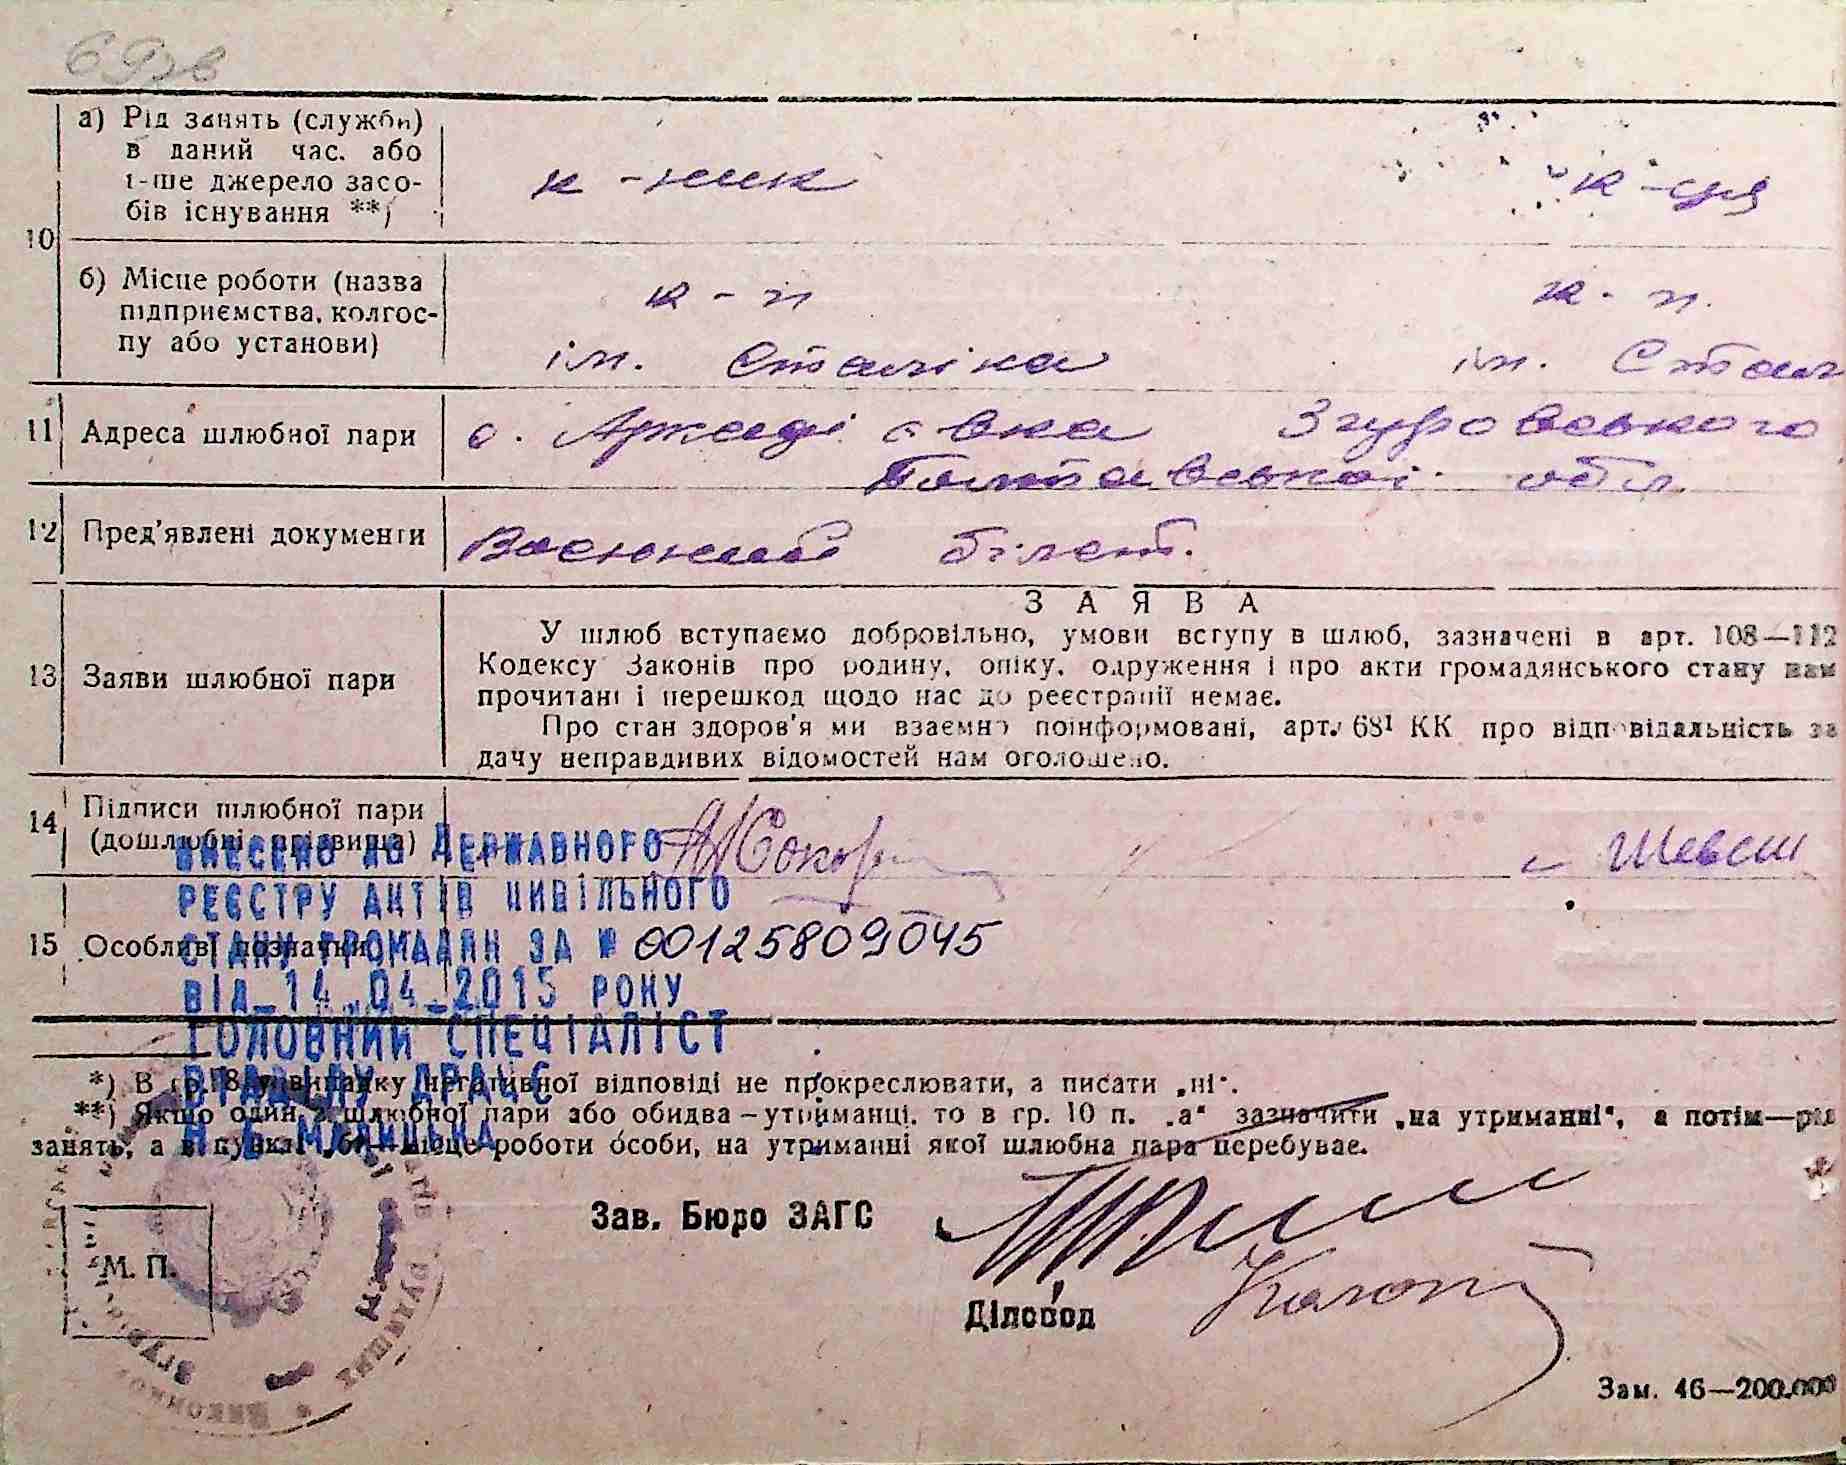 а) Рід занять (служби)
в даний час. або
1-ше джерело засо-
бів існування **)
к-ник
к-ця
10
б) Місце роботи (назва
підприємства, колгос-
пу або установи)
к-п
к-п.
ім. Сталіна
ім. Стал
11 Адреса шлюбної пари
с. Аркадіавка Згуровського
Полтавської обл.
12 Пред'явлені документи
Воєнний білет.
13 Заяви шлюбної пари
ЗАЯВА
У шлюб вступаємо добровільно, умови вступу в шлюб, зазначені в арт. 108—112
Кодексу Законів про родину, опіку, одруження і про акти громадянського стану нам
прочитані і перешкод щодо нас до реєстрації немає.
Про стан здоров'я ми взаємно поінформовані, арт. 68¹ КК про відповідальність за
дачу неправдивих відомостей нам оголошено.
14 Підписи шлюбної пари
(дошлюбні прізвища)
15 Особливі познаки
ВНЕСЕНО ДО ДЕРЖАВНОГО
РЕЄСТРУ АКТІВ ЦИВІЛЬНОГО
СТАНУ ГРОМАДЯН ЗА № 00125809045
ВІД 14.04.2015 РОКУ
ГОЛОВНИЙ СПЕЦІАЛІСТ
ВІДДІЛУ ДРАЦС
*) В гр. 8 у випадку негативної відповіді не прокреслювати, а писати „ні“.
**) Якщо один з шлюбної пари або обидва – утриманці, то в гр. 10 п. „а“ зазначити „на утриманні“, а потім—рід
занять, а в пункті „б“—місце роботи особи, на утриманні якої шлюбна пара перебуває.
Зав. Бюро ЗАГС
М. П.
Діловод
Зам. 46—200.000